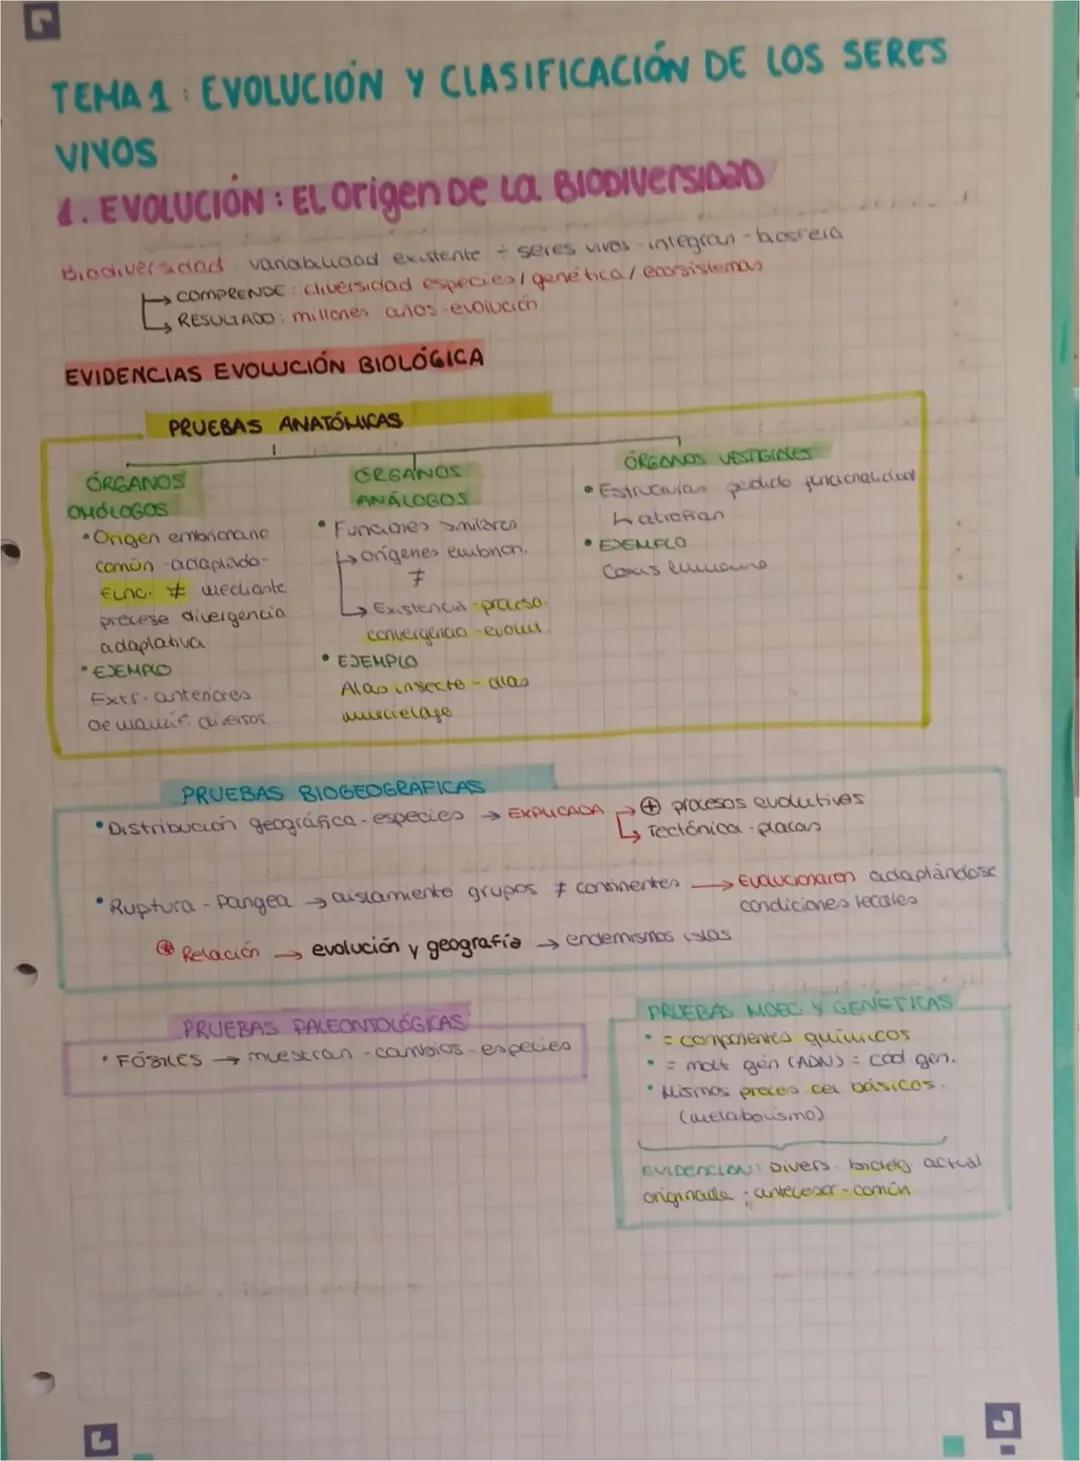 TEMA 1: EVOLUCIÓN Y CLASIFICACIÓN DE LOS SERES
VIVOS
1. EVOLUCIÓN: EL origen De La BIODIVersIDaD
Biodiversidad variabilidad existente ÷ seres vivos - integran - biosfera
↳ COMPRENDE: diversidad especies / genética / ecosistemas
↳ RESULTADO: millones años - evolución
EVIDENCIAS EVOLUCIÓN BIOLÓGICA
PRUEBAS ANATÓMICAS
ÓRGANOS
OMÓLOGOS
• Origen embrionario
común - adaptado -
func. ≠ mediante
procese divergencia
adaptativa
• EJEMPLO
Extr. anteriores
de mamíf. diversos
ÓRGANOS
ANÁLOGOS
• Funciones similares
↳ orígenes embrion.
≠
↳ Existencia - proceso.
convergencia - evolut.
• EJEMPLO
Alas insecto - alas
murcielago
ÓRGANOS VESTIGIALES
• Estructuras perdido funcionalidad
↳ atrofian
• EJEMPLO
Coxis humano
PRUEBAS BIOGEOGRÁFICAS
• Distribución geográfica - especies → EXPLICADA → ⊕ procesos evolutivos
↳ Tectónica - placas
• Ruptura - Pangea → aislamiento grupos ≠ continentes → Evolucionaron adaptándose
condiciones locales
⊛ Relación → evolución y geografía → endemismos islas
PRUEBAS PALEONTOLÓGICAS
• FÓSILES → muestran - cambios - especies
PRUEBAS MOEC Y GENÉTICAS
• = componentes químicos
• = molt gén (ADN) = cód gen.
• Mismos proces cel básicos.
(metabolismo)
EVIDENCIAN: Divers. biológ actual
originada : antecesor - común